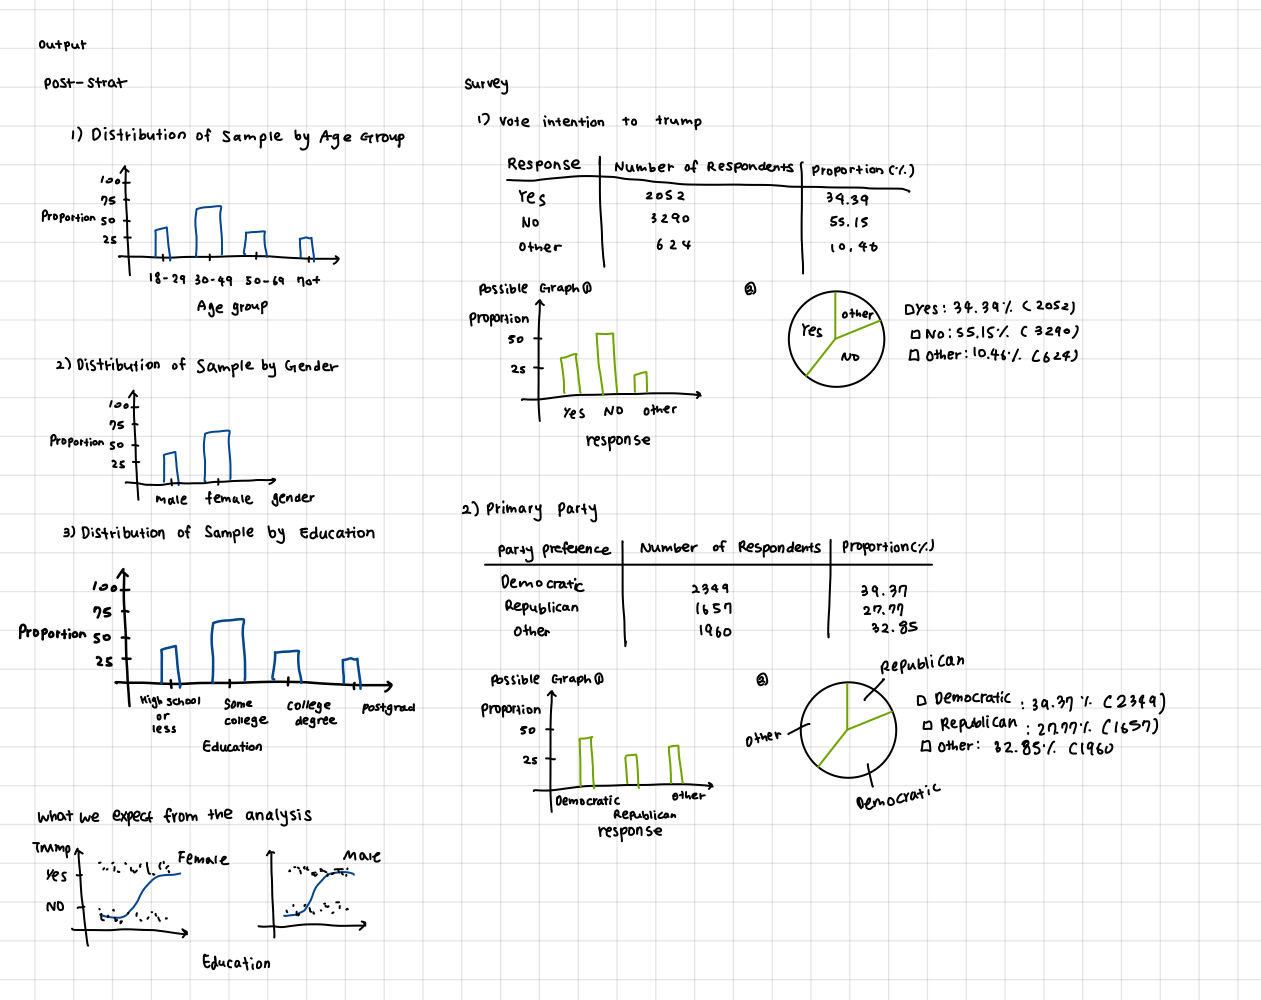 Output
Post-strat
1) Distribution of Sample by Age Group
100
75
Proportion 50
25
18-29 30-49 50-69 70+
Age group
2) Distribution of Sample by Gender
100
75
Proportion 50
25
male female gender
3) Distribution of Sample by Education
100
75
Proportion 50
25
High school or less
Some college
College degree
Postgrad
Education
What we expect from the analysis
Trump
Yes
NO
Female
Male
Education
Survey
1) Vote intention to trump
Response Number of Respondents Proportion (%)
Yes 2052 34.39
NO 3290 55.15
Other 624 10.46
Possible Graph ①
Proportion
50
25
Yes NO other
response
②
Yes
other
NO
Yes: 34.39% (2052)
No: 55.15% (3290)
Other: 10.46% (624)
2) Primary Party
Party preference Number of Respondents Proportion (%)
Democratic 2349 39.37
Republican 1657 27.77
Other 1960 32.85
Possible Graph ①
Proportion
50
25
Democratic
Republican
other
response
②
Republican
Other
Democratic
Democratic : 39.37 % (2349)
Republican : 27.77% (1657)
Other: 32.85% (1960